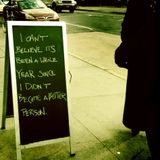 I CAN'T
BELIEVE IT'S
BEEN A WHOLE
YEAR SINCE
I DIDN'T
BECOME A BETTER
PERSON.